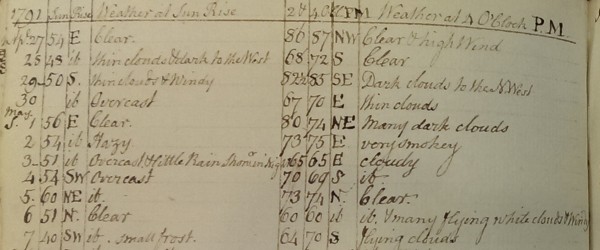 1791 Sun Rise Weather at Sun Rise 2 & 4 O'Cl. P.M Weather at 4 O'Clock P.M.
27 54 E Clear. 86 87 NW Clear & high Wind
28 48 it thin clouds & dark to the West 68 72 S Clear
29 50 S. thin clouds & Windy 82 85 SE Dark clouds to the N. West
30 it Overcast 67 70 E thin clouds
May 1 56 E Clear. 80 74 NE Many dark clouds
2 54 it Hazy 73 75 E very smokey
3 51 it Overcast & little Rain 65 65 E cloudy
4 54 SW Overcast 70 69 S it
5 60 NE it. 73 74 N. Clear.
6 51 N. Clear 60 60 it it. & many flying white clouds & Windy
7 40 SW it. small frost. 64 70 S flying clouds